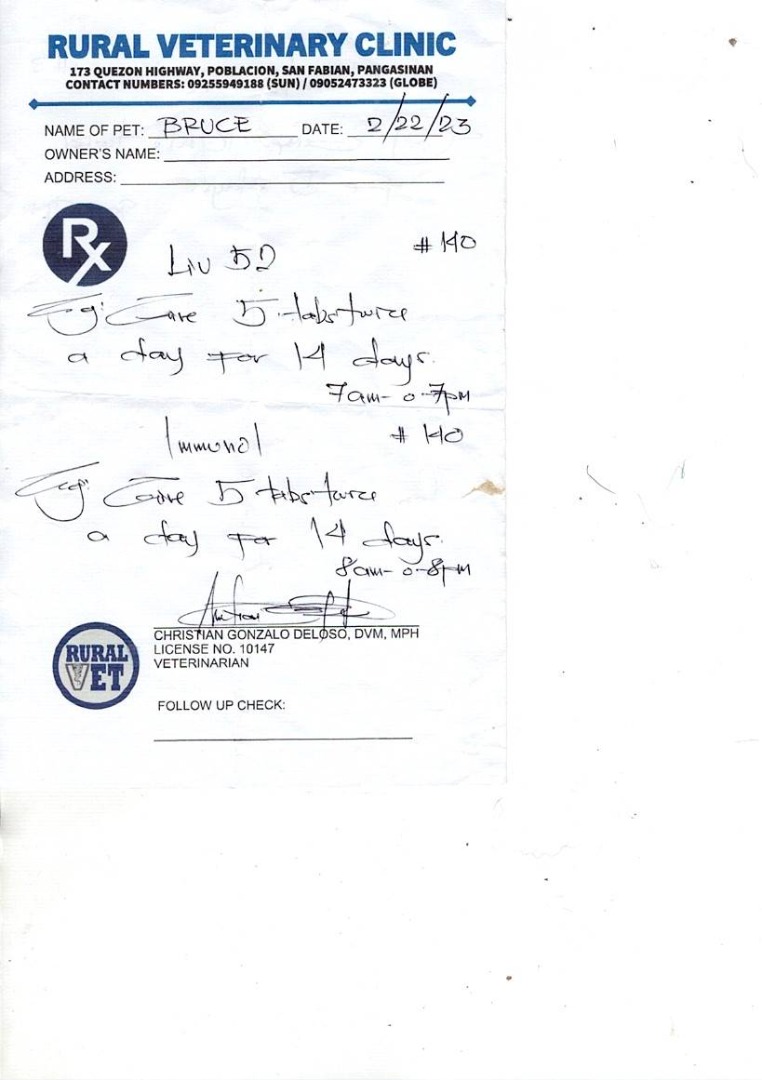 RURAL VETERINARY CLINIC
173 QUEZON HIGHWAY, POBLACION, SAN FABIAN, PANGASINAN
CONTACT NUMBERS: 09255949188 (SUN) / 09052473323 (GLOBE)
NAME OF PET: BRUCE DATE: 2/22/23
OWNER'S NAME:
ADDRESS:
Rx
Liv 52 # 140
Sig: Give 5 tabs twice
a day for 14 days.
7am-0-7pm
Immunol # 140
Sig: Give 5 tabs twice
a day for 14 days.
8am-0-8pm
CHRISTIAN GONZALO DELOSO, DVM, MPH
LICENSE NO. 10147
VETERINARIAN
RURAL
VET
FOLLOW UP CHECK: